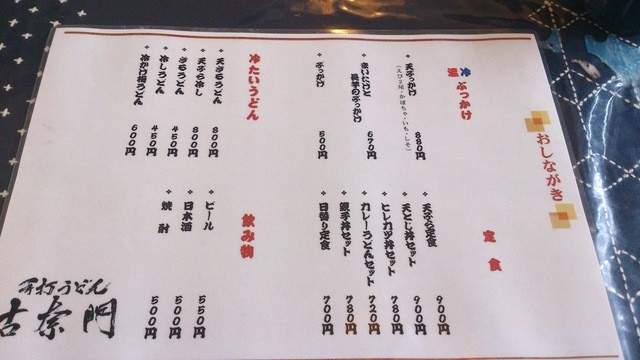 おしながき
冷温ぶっかけ
❖天ぶっかけ 880円
(えび2尾・かぼちゃ・いも・しそ)
❖まいたけと
長芋のぶっかけ 670円
❖ぶっかけ 500円
冷たいうどん
❖天ざるうどん 800円
❖天ぷら冷し 800円
❖ざるうどん 450円
❖冷しうどん 450円
❖冷かけ梅うどん 600円
定食
❖天ぷら定食 900円
❖天とじ丼セット 900円
❖ヒレカツ丼セット 780円
❖カレーうどんセット 720円
❖親子丼セット 780円
❖日替り定食 700円
飲み物
❖ビール 550円
❖日本酒 500円
❖焼酎 500円
手打うどん
古奈門